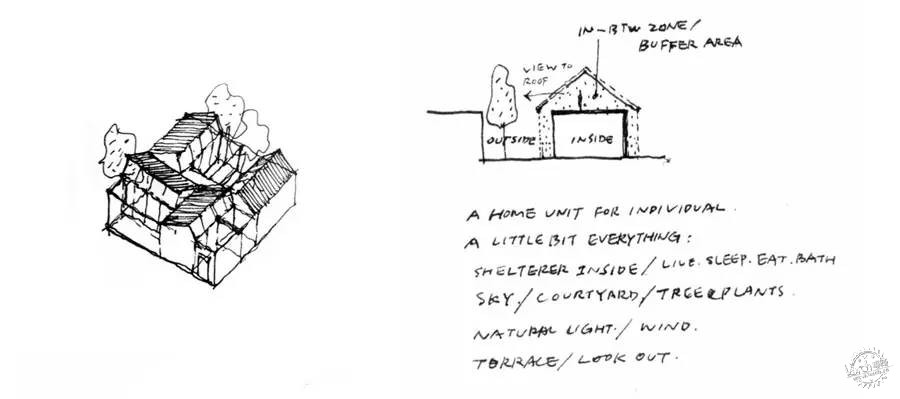 IN-BTW ZONE/
BUFFER AREA
VIEW TO
ROOF
OUTSIDE
INSIDE
A HOME UNIT FOR INDIVIDUAL.
A LITTLE BIT EVERYTHING:
SHELTERER INSIDE/LIVE.SLEEP.EAT.BATH
SKY./COURTYARD/TREE&PLANTS.
NATURAL LIGHT./WIND.
TERRACE/LOOK OUT.